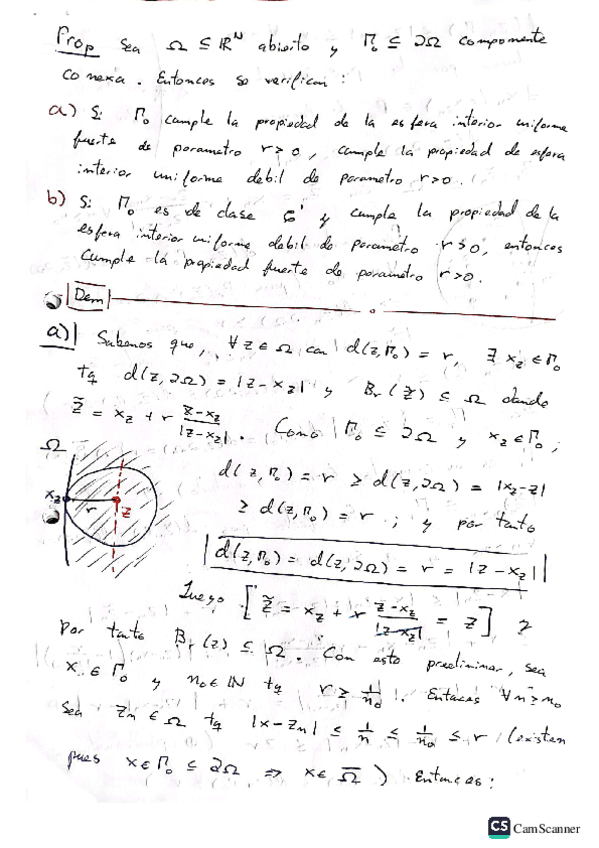 Prop Sea Ω ⊆ ℝ^N abierto y Γ₀ ⊆ ∂Ω componente
conexa. Entonces se verifican :
a) Si Γ₀ cumple la propiedad de la esfera interior uniforme
fuerte de parametro r > 0, cumple la propiedad de esfera
interior uniforme debil de parametro r>0.
b) Si Γ₀ es de clase C¹ y cumple la propiedad de la
esfera interior uniforme debil de parametro r>0, entonces
cumple la propiedad fuerte de parametro r>0.
Dem
a) Sabemos que, ∀ z ∈ Ω con d(z,Γ₀) = r, ∃ x_z ∈ Γ₀
tq d(z,∂Ω) = |z-x_z| y B_r(z̃) ⊆ Ω dando
z̃ = x_z + r (z-x_z)/|z-x_z| . Como Γ₀ ⊆ ∂Ω y x_z ∈ Γ₀,
Ω
x_z r z
d(z,Γ₀) = r ≥ d(z,∂Ω) = |x_z-z|
≥ d(z,Γ₀) = r ; y por tanto
d(z,Γ₀) = d(z,∂Ω) = r = |z-x_z|
Luego [z̃ = x_z + r (z-x_z)/|z-x_z| = z] y
Por tanto B_r(z) ⊆ Ω. Con esto preeliminar, sea
x ∈ Γ₀ y n₀ ∈ ℕ tq r ≥ 1/n₀. Entonces ∀n≥n₀
sea z_n ∈ Ω tq |x-z_n| ≤ 1/n ≤ 1/n₀ ≤ r (existen
pues x ∈ Γ₀ ⊆ ∂Ω ⇒ x ∈ Ω̅ ) Entonces:
CS CamScanner